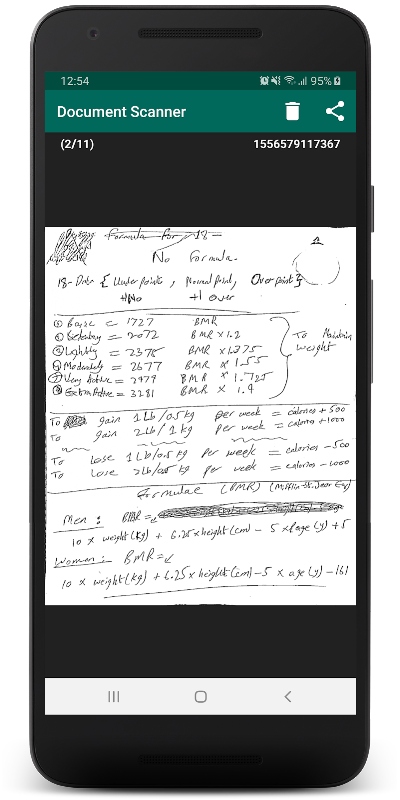 12:54 95%
Document Scanner
(2/11) 1556579117367
Formula for 18-
No Formula.
18- Data { Under point, Normal point, Over point }
+No +1 over
① Basic = 1727 BMR
= 2072 BMR x 1.2
Lightly = 2376 BMR x 1.375
Moderately = 2677 BMR x 1.55
Very Active = 2979 BMR x 1.725
Extra Active = 3281 BMR x 1.9
To Maintain
weight
To gain 1 Lb/0.5 kg per week = calories + 500
To gain 2Lb/ 1 kg per week = calories + 1000
To Lose 1 Lb/0.5 kg per week = calories - 500
To Lose 2Lb/ kg per week = calories - 1000
Formulae (BMR) (Mifflin-St.
Men : BMR =
10 x weight (kg) + 6.25 x height (cm) - 5 x age (y) + 5
Woman : BMR =
10 x weight (kg) + 6.25 x height (cm) - 5 x age (y) - 161